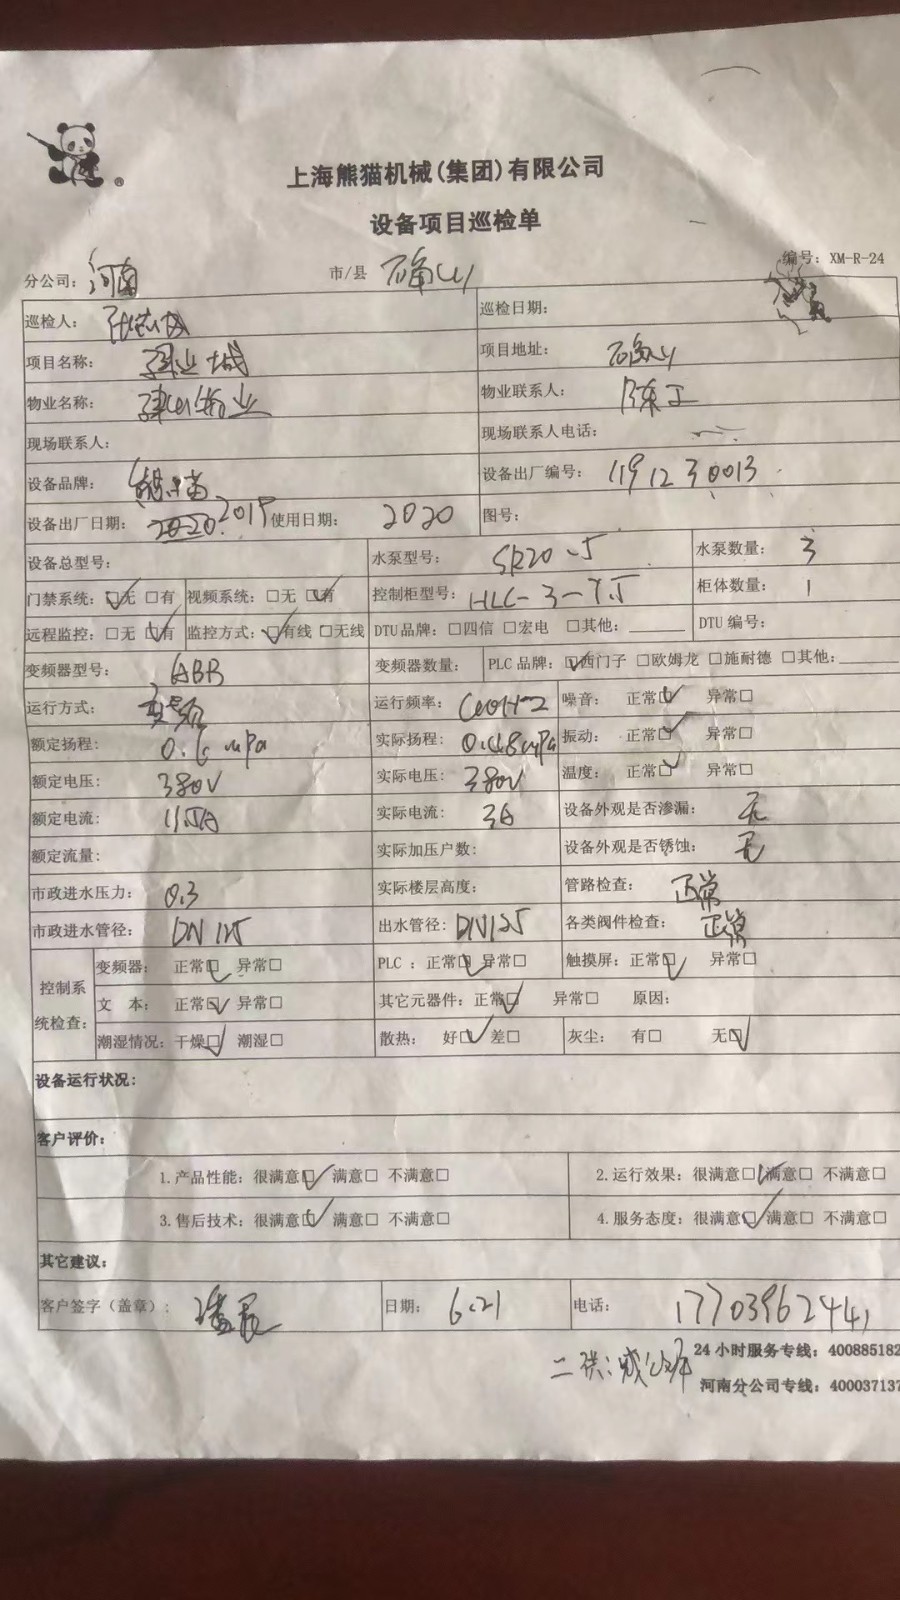 上海熊猫机械(集团)有限公司
设备项目巡检单
分公司: 河南 市/县 确山 编号: XM-R-24
巡检人: 巡检日期:
项目名称: 建业城 项目地址: 确山
物业名称: 建业物业 物业联系人: 陈工
现场联系人: 现场联系人电话:
设备品牌: 熊猫 设备出厂编号: 1191230013
设备出厂日期: 2020 2019 使用日期: 2020 图号:
设备总型号: 水泵型号: SR20-5 水泵数量: 3
门禁系统: ☑无 □有 视频系统: □无 ☑有 控制柜型号: HLC-3-7.5 柜体数量: 1
远程监控: □无 ☑有 监控方式: ☑有线 □无线 DTU品牌: □四信 □宏电 □其他: DTU编号:
变频器型号: ABB 变频器数量: PLC品牌: ☑西门子 □欧姆龙 □施耐德 □其他:
运行方式: 变频 运行频率: 噪音: 正常☑ 异常□
额定扬程: 0.6mpa 实际扬程: 0.48mpa 振动: 正常☑ 异常□
额定电压: 380V 实际电压: 380V 温度: 正常☑ 异常□
额定电流: 11.5A 实际电流: 3A 设备外观是否渗漏: 无
额定流量: 实际加压户数: 设备外观是否锈蚀: 无
市政进水压力: 0.3 实际楼层高度: 管路检查: 正常
市政进水管径: DN125 出水管径: DN125 各类阀件检查: 正常
控制系统检查: 变频器: 正常☑ 异常□ PLC: 正常☑ 异常□ 触摸屏: 正常☑ 异常□
文 本: 正常☑ 异常□ 其它元器件: 正常☑ 异常□ 原因:
潮湿情况: 干燥☑ 潮湿□ 散热: 好☑ 差□ 灰尘: 有□ 无☑
设备运行状况:
客户评价:
1.产品性能: 很满意☑ 满意□ 不满意□ 2.运行效果: 很满意☑ 满意□ 不满意□
3.售后技术: 很满意☑ 满意□ 不满意□ 4.服务态度: 很满意☑ 满意□ 不满意□
其它建议:
客户签字(盖章): 日期: 6.21 电话: 17703962441
24小时服务专线: 400885182
二供: 河南分公司专线: 400037137